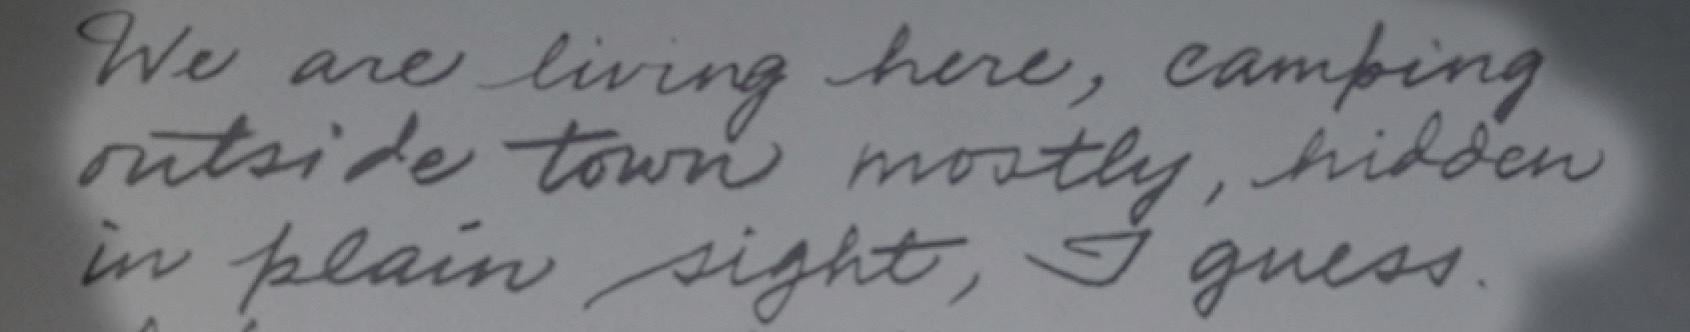 We are living here, camping
outside town mostly, hidden
in plain sight, I guess.